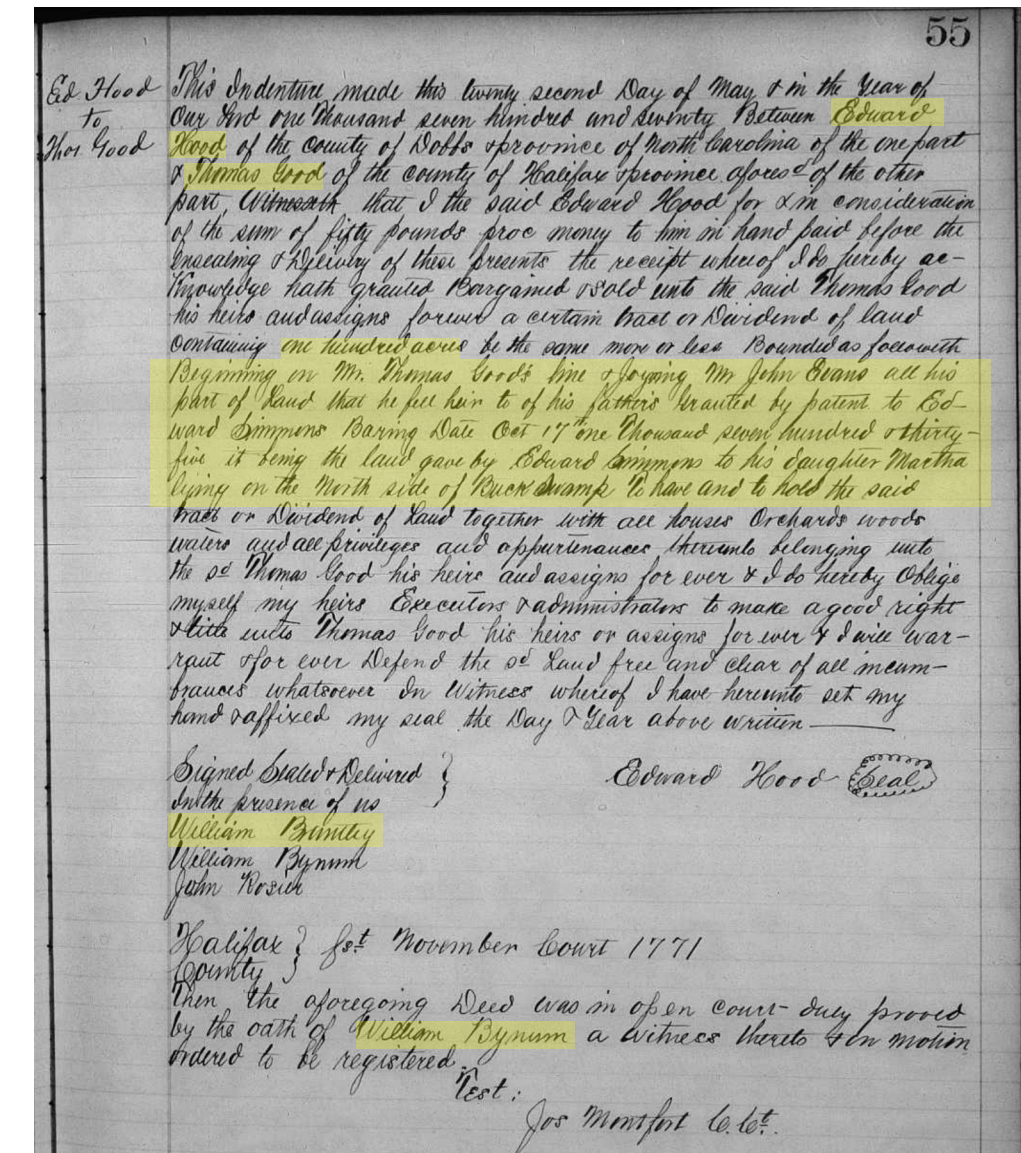 55
Ed. Hood
to
Thos. Good
This Indenture made this twenty second Day of May & in the Year of
Our Lord one Thousand seven hundred and seventy Between Edward
Hood of the county of Dobbs & province of North Carolina of the one part
& Thomas Good of the county of Halifax & province aforesd of the other
part, Witnesseth that I the said Edward Hood for & in consideration
of the sum of fifty pounds proc money to him in hand paid before the
Ensealing & Delivery of these presents the receipt whereof I do hereby ac-
knowledge hath granted Bargained & sold unto the said Thomas Good
his heirs and assigns forever a certain tract or Dividend of land
containing one hundred acres be the same more or less Bounded as followeth
Beginning on Mr. Thomas Good's line & Joyning Mr John Evans all his
part of Land that he fell heir to of his fathers Granted by patent to Ed-
ward Simmons Baring Date Oct 17th one Thousand seven hundred & thirty-
five it being the land gave by Edward Simmons to his daughter Martha
lying on the North side of Buck Swamp To have and to hold the said
tract or Dividend of Land together with all houses Orchards woods
waters and all privileges and appurtenances thereunto belonging unto
the sd Thomas Good his heirs and assigns for ever & I do hereby Oblige
myself my heirs Executors & administrators to make a good right
& title unto Thomas Good his heirs or assigns for ever & I will war-
rant & for ever Defend the sd Land free and clear of all incum-
brances whatsoever In Witness whereof I have hereunto set my
hand & affixed my seal the Day & Year above written
Signed Sealed & Delivered } Edward Hood Seal
In the presence of us
William Brantley
William Bynum
John Rosier
Halifax } fst November Court 1771
County }
Then the aforegoing Deed was in open court duly proved
by the oath of William Bynum a Witness thereto & on motion
ordered to be registered.
Test:
Jos Montfort C. Ct.